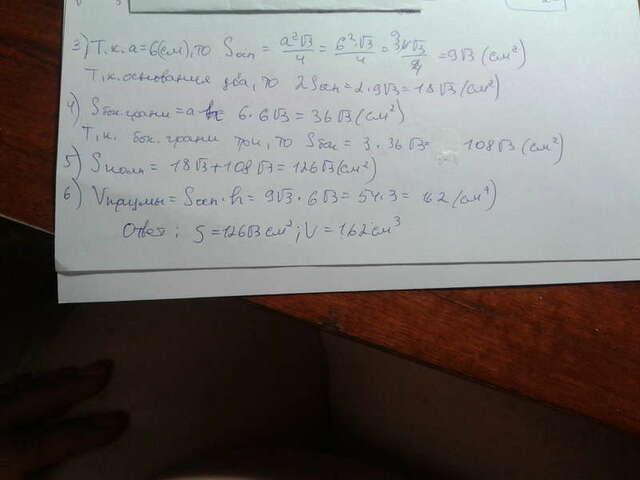 3) Т.к. a=6(см), то Sосн = a²√3/4 = 6²·√3/4 = 36√3/4 = 9√3 (см²)
Т.к. основания два, то 2Sосн = 2·9√3 = 18√3 (см²)
4) Sбок.грани = a· 6·6√3 = 36√3 (см²)
Т.к. бок. грани три, то Sбок = 3·36√3= 108√3 (см²)
5) Sполн = 18√3+108√3 = 126√3 (см²)
6) Vпризмы = Sосн·h = 9√3·6√3 = 54·3 = 162 (см⁴)
Ответ: S = 126√3 см²; V = 162 см³